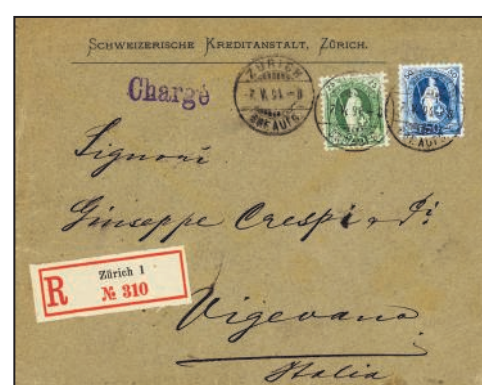 SCHWEIZERISCHE KREDITANSTALT, ZÜRICH.
Chargé
ZÜRICH
7. V. 94. – 8
BRF. AUFG.
Signori
Giuseppe Crespi
R
Zürich 1
№ 310
Vigevano
Italia